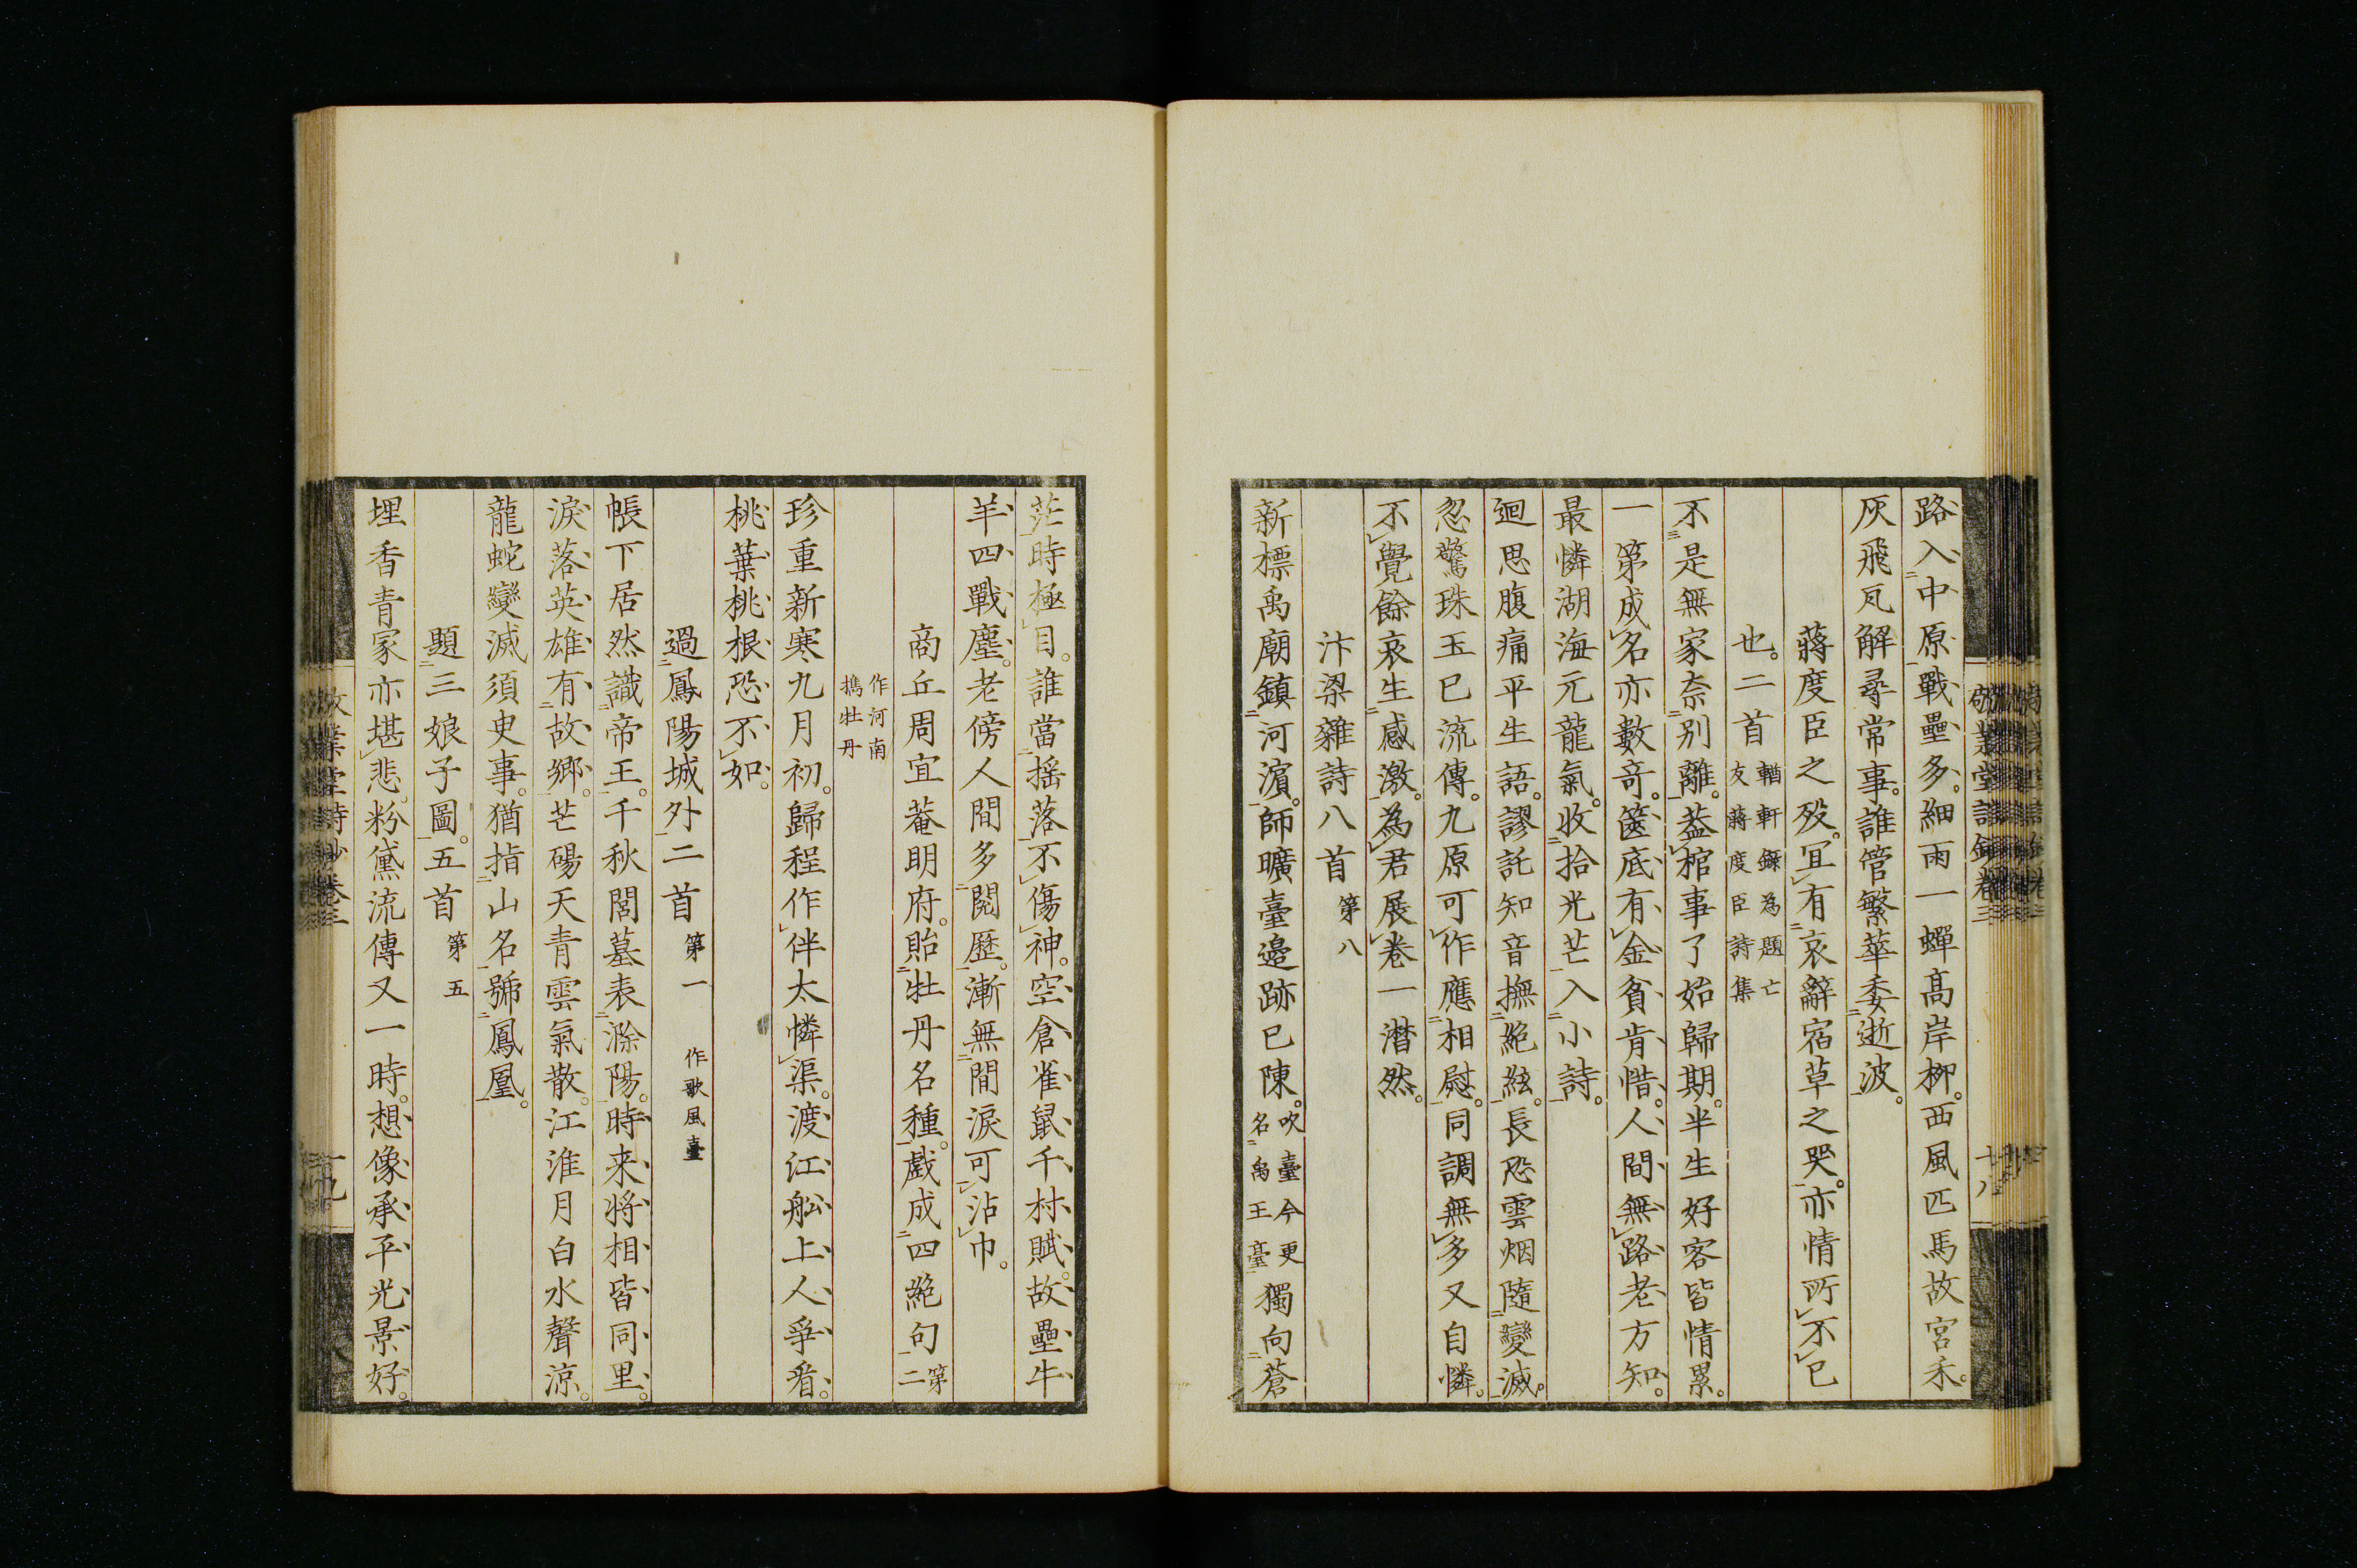 路入中原戰壘多。細雨一蟬高岸柳。西風匹馬故宮禾。
灰飛瓦解尋常事。誰管繁華委逝波。
蔣度臣之歿。宜有哀辭宿草之哭。亦情所不已
也。二首 輶軒錄為題亡友蔣度臣詩集
不是無家奈別離。葢棺事了始歸期。半生好客皆情累。
一第成名亦數竒。篋底有金貧肯惜。人間無路老方知。
最憐湖海元龍氣。收拾光芒入小詩。
迴思腹痛平生語。謬託知音撫絕絃。長恐雲烟隨變滅。
忽驚珠玉已流傳。九原可作應相慰。同調無多又自憐。
不覺餘哀生感激。為君展卷一潸然。
汴梁雜詩八首 第八
新標禹廟鎮河濵。師曠臺邉跡已陳。吹臺今更名禹王臺 獨向蒼
茫時極目。誰當搖落不傷神。空倉雀鼠千村賦。故壘牛
羊四戰塵。老傍人間多閱歷。漸無閒淚可沾巾。
商丘周宜菴明府。貽牡丹名種。戲成四絕句 第二
作河南擕牡丹
珍重新寒九月初。歸程作伴太憐渠。渡江船上人爭看。
桃葉桃根恐不如。
過鳳陽城外二首 第一 作歌風臺
帳下居然識帝王。千秋閭墓表滁陽。時来將相皆同里。
淚落英雄有故鄉。芒碭天青雲氣散。江淮月白水聲涼。
龍蛇變滅須臾事。猶指山名號鳳凰。
題三娘子圖。五首 第五
埋香青冢亦堪悲。粉黛流傳又一時。想像承平光景好。